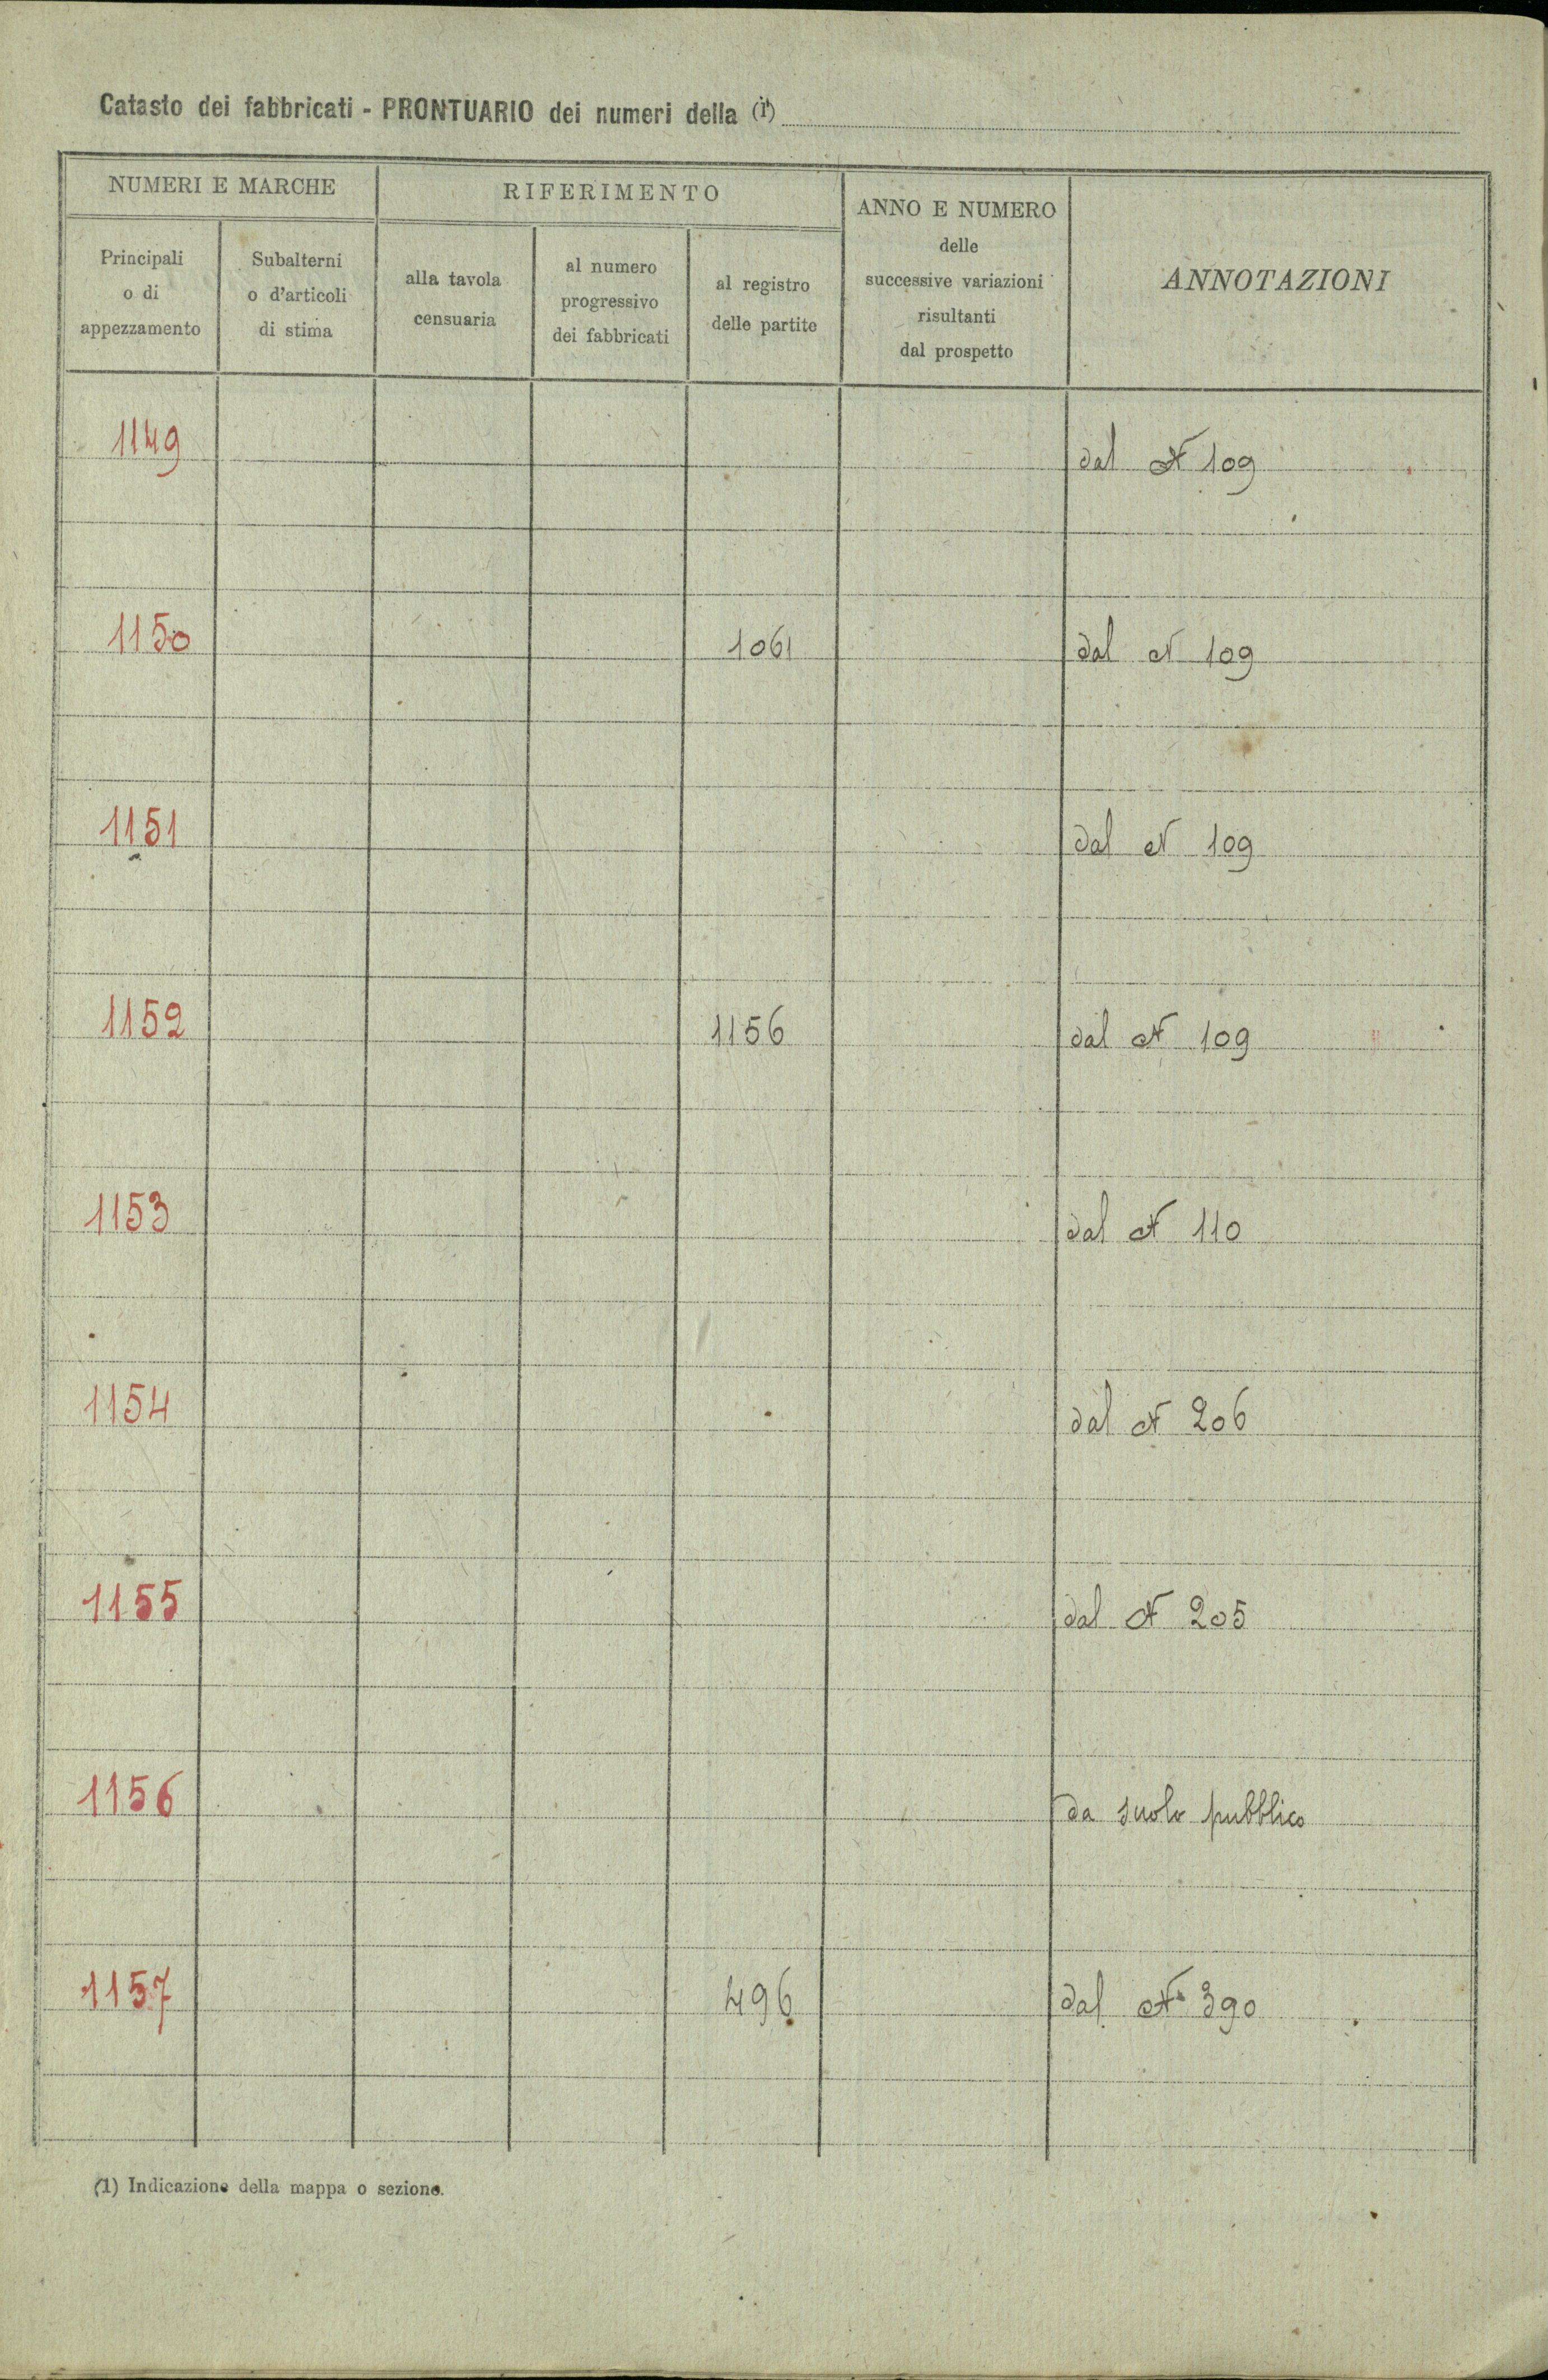 Catasto dei fabbricati - PRONTUARIO dei numeri della (1)
NUMERI E MARCHE
RIFERIMENTO
ANNO E NUMERO
delle
successive variazioni
risultanti
dal prospetto
ANNOTAZIONI
Principali
o di
appezzamento
Subalterni
o d'articoli
di stima
alla tavola
censuaria
al numero
progressivo
dei fabbricati
al registro
delle partite
1149 dal N 109
1150 1061 dal N 109
1151 dal N 109
1152 1156 dal N 109
1153 dal N 110
1154 dal N 206
1155 dal N 205
1156 da suolo pubblico
1157 496 dal N 390
(1) Indicazione della mappa o sezione.